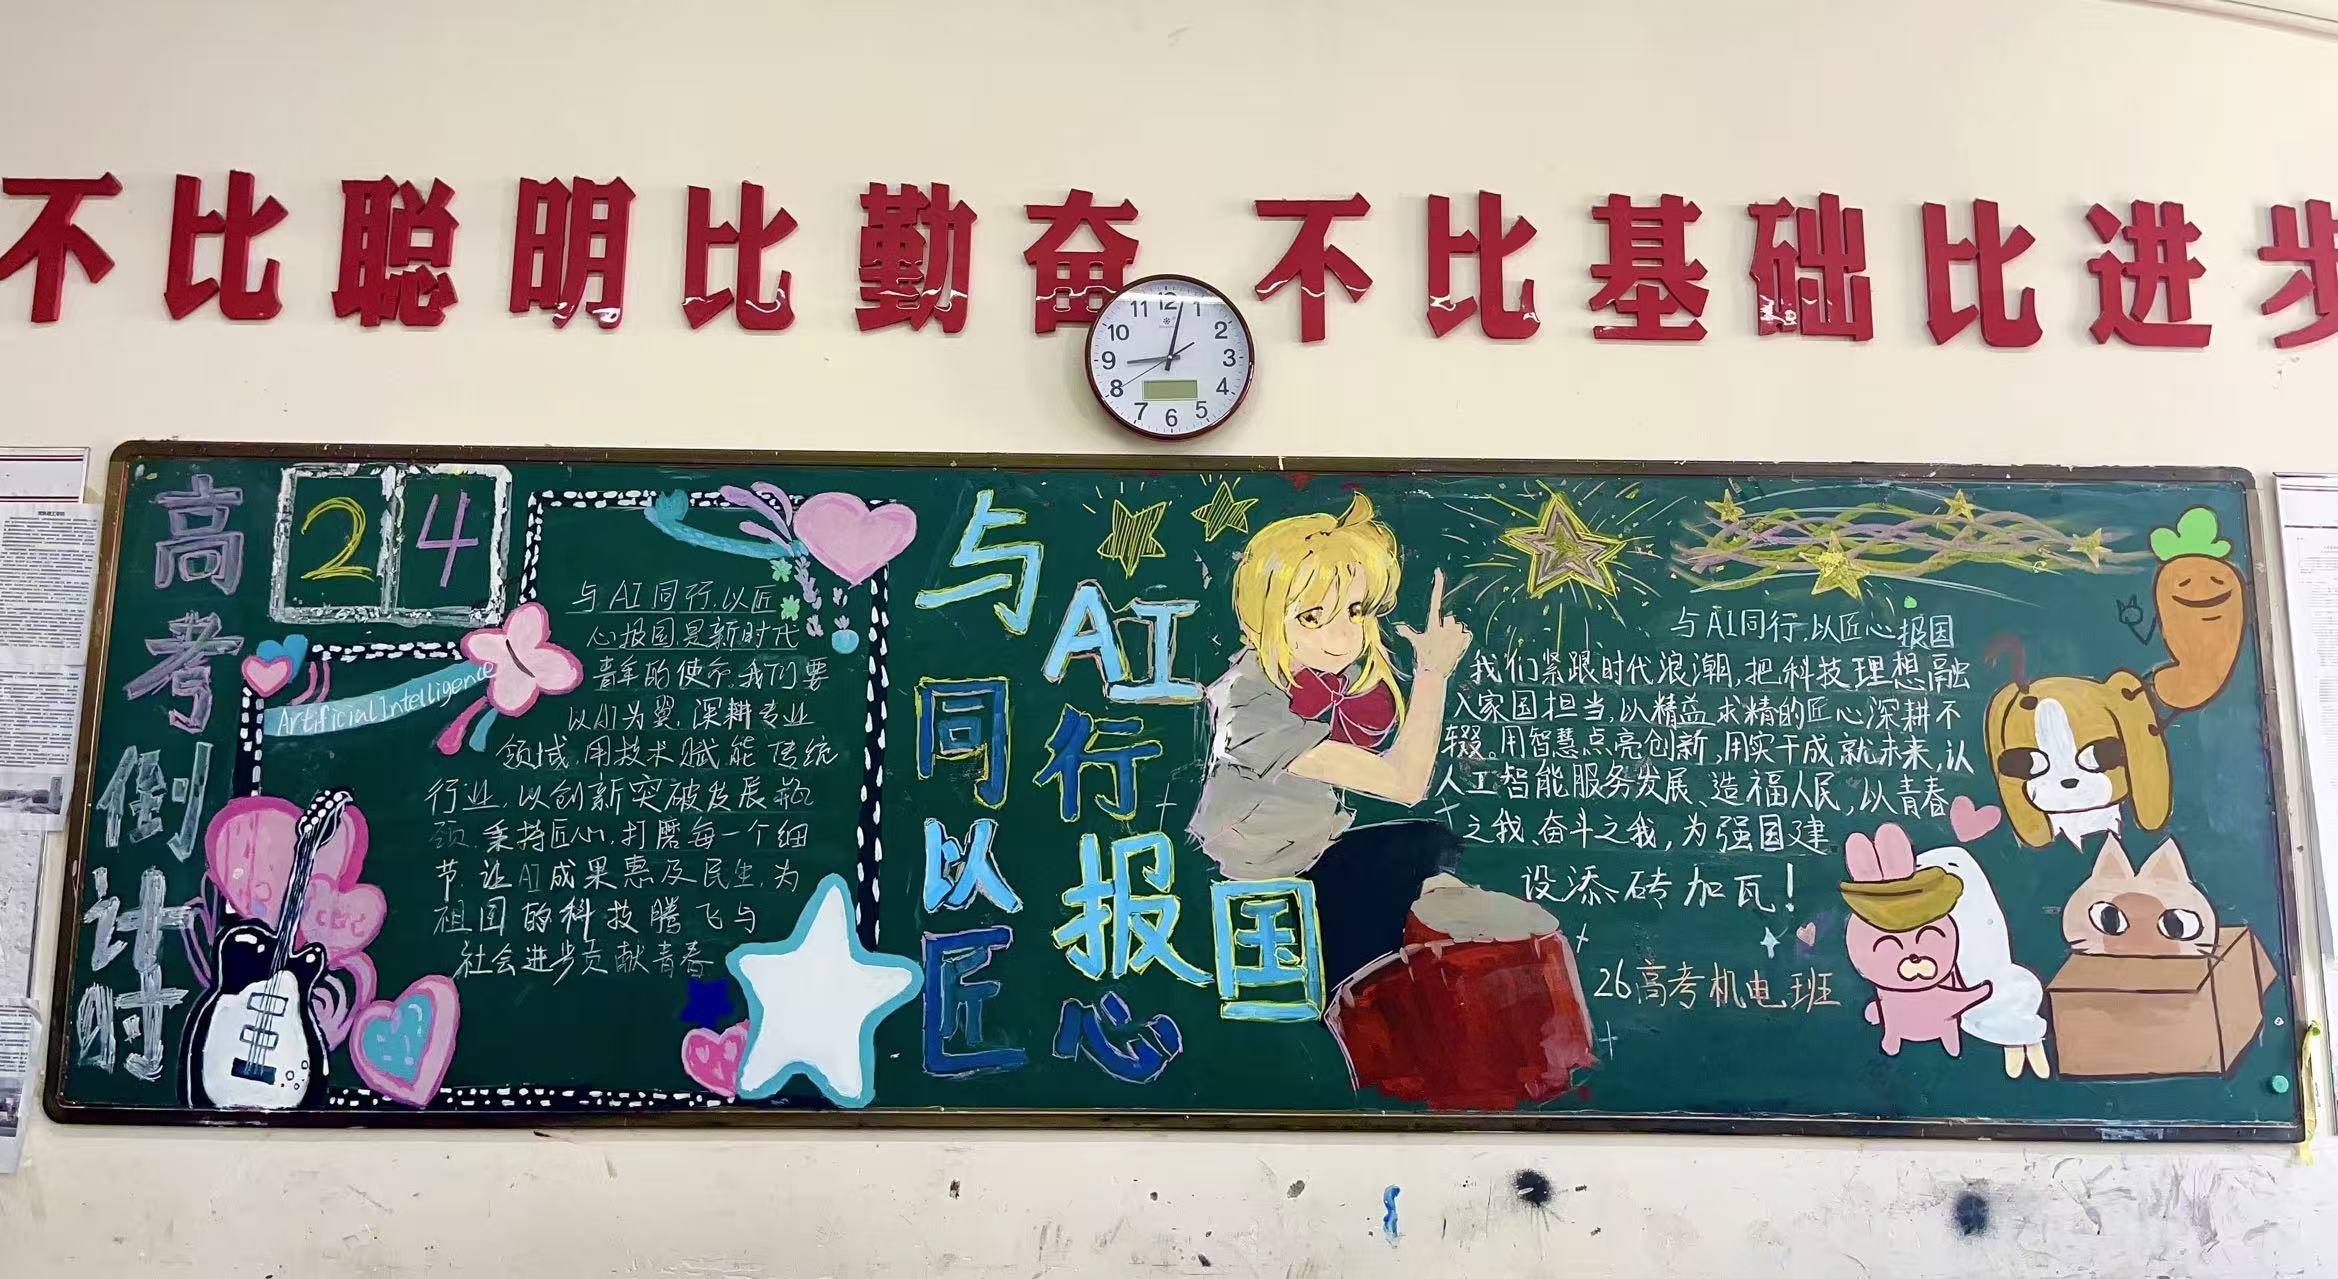 不比聪明比勤奋 不比基础比进步
11 12 1
10 2
9 3
8 4
7 6 5
高考倒计时
24
Artificial Intelligence
与AI同行,以匠
心报国,是新时代
青年的使命,我们要
以AI为翼,深耕专业
领域,用技术赋能传统
行业,以创新突破发展瓶
颈,秉持匠心,打磨每一个细
节,让AI成果惠及民生,为
祖国的科技腾飞与
社会进步贡献青春
与AI同行
以匠心报国
与AI同行,以匠心报国
我们紧跟时代浪潮,把科技理想融
入家国担当,以精益求精的匠心深耕不
辍。用智慧点亮创新,用实干成就未来,认
人工智能服务发展、造福人民,以青春
之我、奋斗之我,为强国建
设添砖加瓦!
26高考机电班